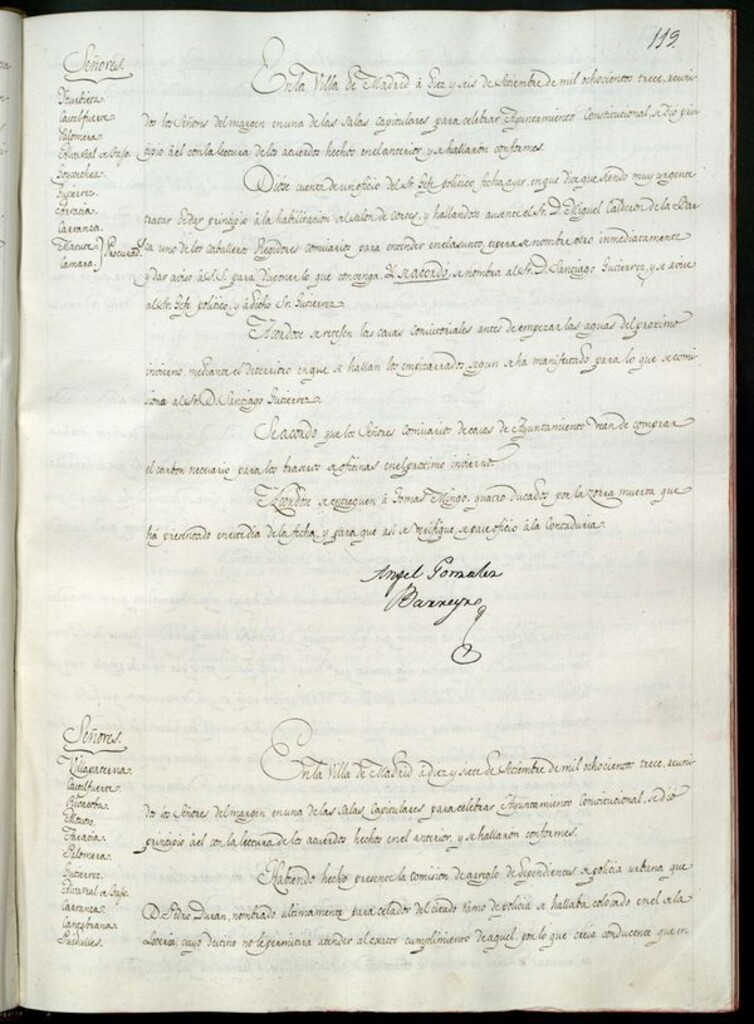 119.
Señores.
Yturbieta
Castelfuerte
Palomera
Gutierrez
Garacia
Carranza
Matute
Camara } Procurad.
En la Villa de Madrid á diez y seis de Setiembre de mil ochocientos trece, reuni-
dos los Señores del margen en una de las Salas Capitulares para celebrar Ayuntamiento Constitucional, se dió prin-
cipio á el con la lectura de los acuerdos hechos en el anterior, y se hallaron conformes.
Dióse cuenta de un oficio del Sr. Gefe politico fecha ayer, en que dice que siendo muy urgente
tratar de dar principio á la habilitacion del salon de cortes, y hallandose ausente el Sr. D. Miguel Calderon de la Bar-
ca uno de los caballeros Regidores comisarios para entender en el asunto, espera se nombre otro inmediatamente
y dar aviso á S.S. para disponer lo que convenga. Y se acordó, se nombra al Sr. D. Santiago Gutierrez, y se avise
al Sr. Gefe politico, y á dicho Sr. Gutierrez.
Acordose se retegen las casas Consistoriales antes de empezar las aguas del proximo
invierno, mediante el deterioro en que se hallan los empizarrados, segun se há manifestado, para lo que se comi-
siona al Sr. D. Santiago Gutierrez.
Se acordó que los Señores Comisarios de casas de Ayuntamiento vean de comprar
el carbon necesario para los braseros de oficinas en el proximo invierno.
Acordose se entreguen á Tomas Mingo, quatro ducados por la zorra muerta que
há presentado en este dia de la fecha, y para que así se verifique, se pase oficio á la Contaduria.
Angel Gonzalez
Barreyro
Señores.
Villapaterna
Castelfuerte
Garacia
Palomera
Gutierrez
Carranza
En la Villa de Madrid á diez y siete de Setiembre de mil ochocientos trece, reuni-
dos los Señores del margen en una de las Salas Capitulares para celebrar Ayuntamiento Constitucional, se dió
principio á el con la lectura de los acuerdos hechos en el anterior, y se hallaron conformes.
Habiendo hecho presente la comision de arreglo de dependiencias de policia urbana que
D. Pedro Duran, nombrado ultimamente para celador del citado ramo de policia se hallaba colocado en el de la
Loteria, cuyo destino no le permitira atender al exacto cumplimiento de aquel, por lo que creia conducente que en